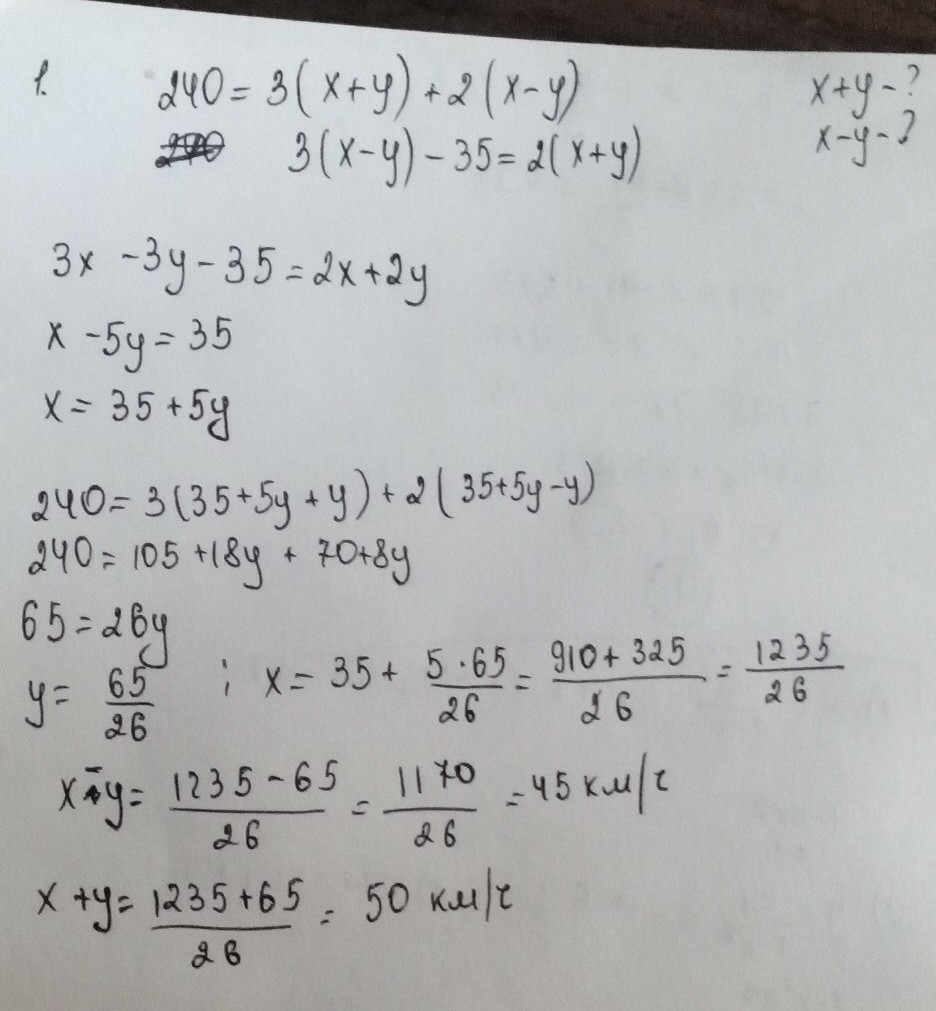 1. 240 = 3(x+y) + 2(x-y) x+y - ?
3(x-y) - 35 = 2(x+y) x-y - ?
3x - 3y - 35 = 2x + 2y
x - 5y = 35
x = 35 + 5y
240 = 3(35+5y+y) + 2(35+5y-y)
240 = 105 + 18y + 70 + 8y
65 = 26y
y = 65/26 ; x = 35 + 5·65/26 = 910+325/26 = 1235/26
x-y = 1235-65/26 = 1170/26 = 45 км/ч
x+y = 1235+65/26 = 50 км/ч